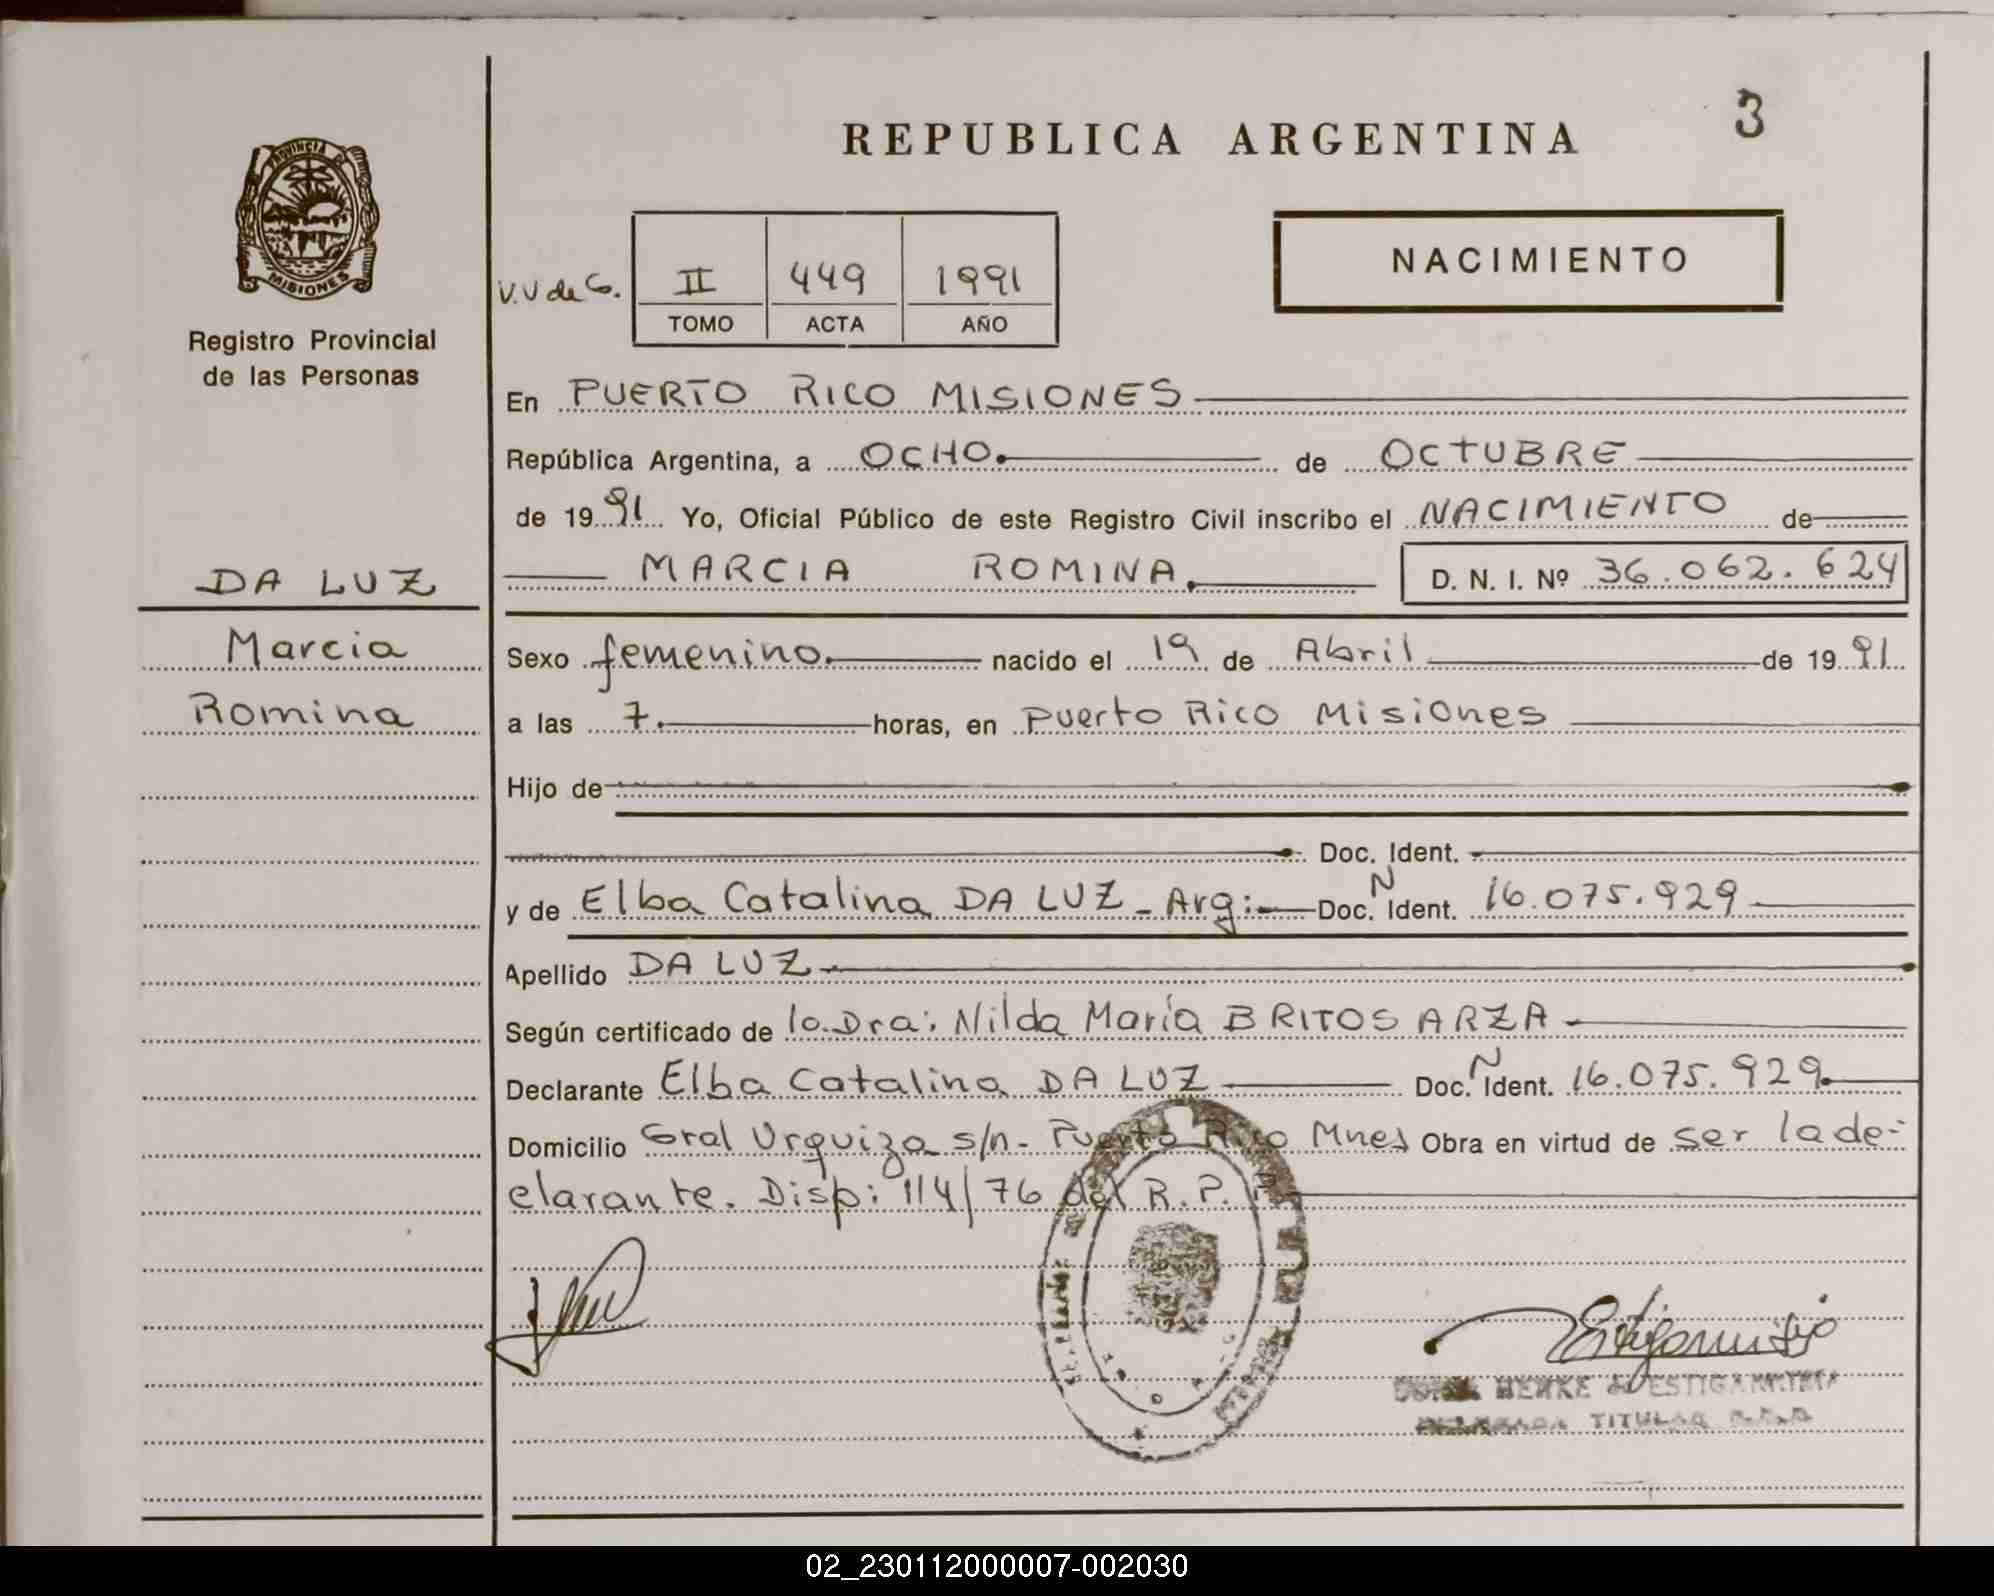 REPUBLICA ARGENTINA
3
PROVINCIA DE
MISIONES
Registro Provincial
de las Personas
NACIMIENTO
V.V de Co.
II 449 1991
TOMO ACTA AÑO
En PUERTO RICO MISIONES
República Argentina, a OCHO. de OCTUBRE
de 1991 Yo, Oficial Público de este Registro Civil inscribo el NACIMIENTO de
MARCIA ROMINA. D. N. I. Nº 36.062.624
DA LUZ
Marcia
Romina
Sexo femenino. nacido el 19 de Abril de 1991
a las 7. horas, en Puerto Rico Misiones
Hijo de
Doc. Ident.
y de Elba Catalina DA LUZ - Arg: Doc. N Ident. 16.075.929
Apellido DA LUZ
Según certificado de la.Dra: Nilda María BRITOS ARZA
Declarante Elba Catalina DA LUZ Doc. N Ident. 16.075.929.
Domicilio Gral Urquiza s/n - Puerto Rico Mnes Obra en virtud de ser la de-
clarante. Disp: 114/76 del R.P.
HENKE de ESTIGARRIBIA
TITULAR
02_230112000007-002030